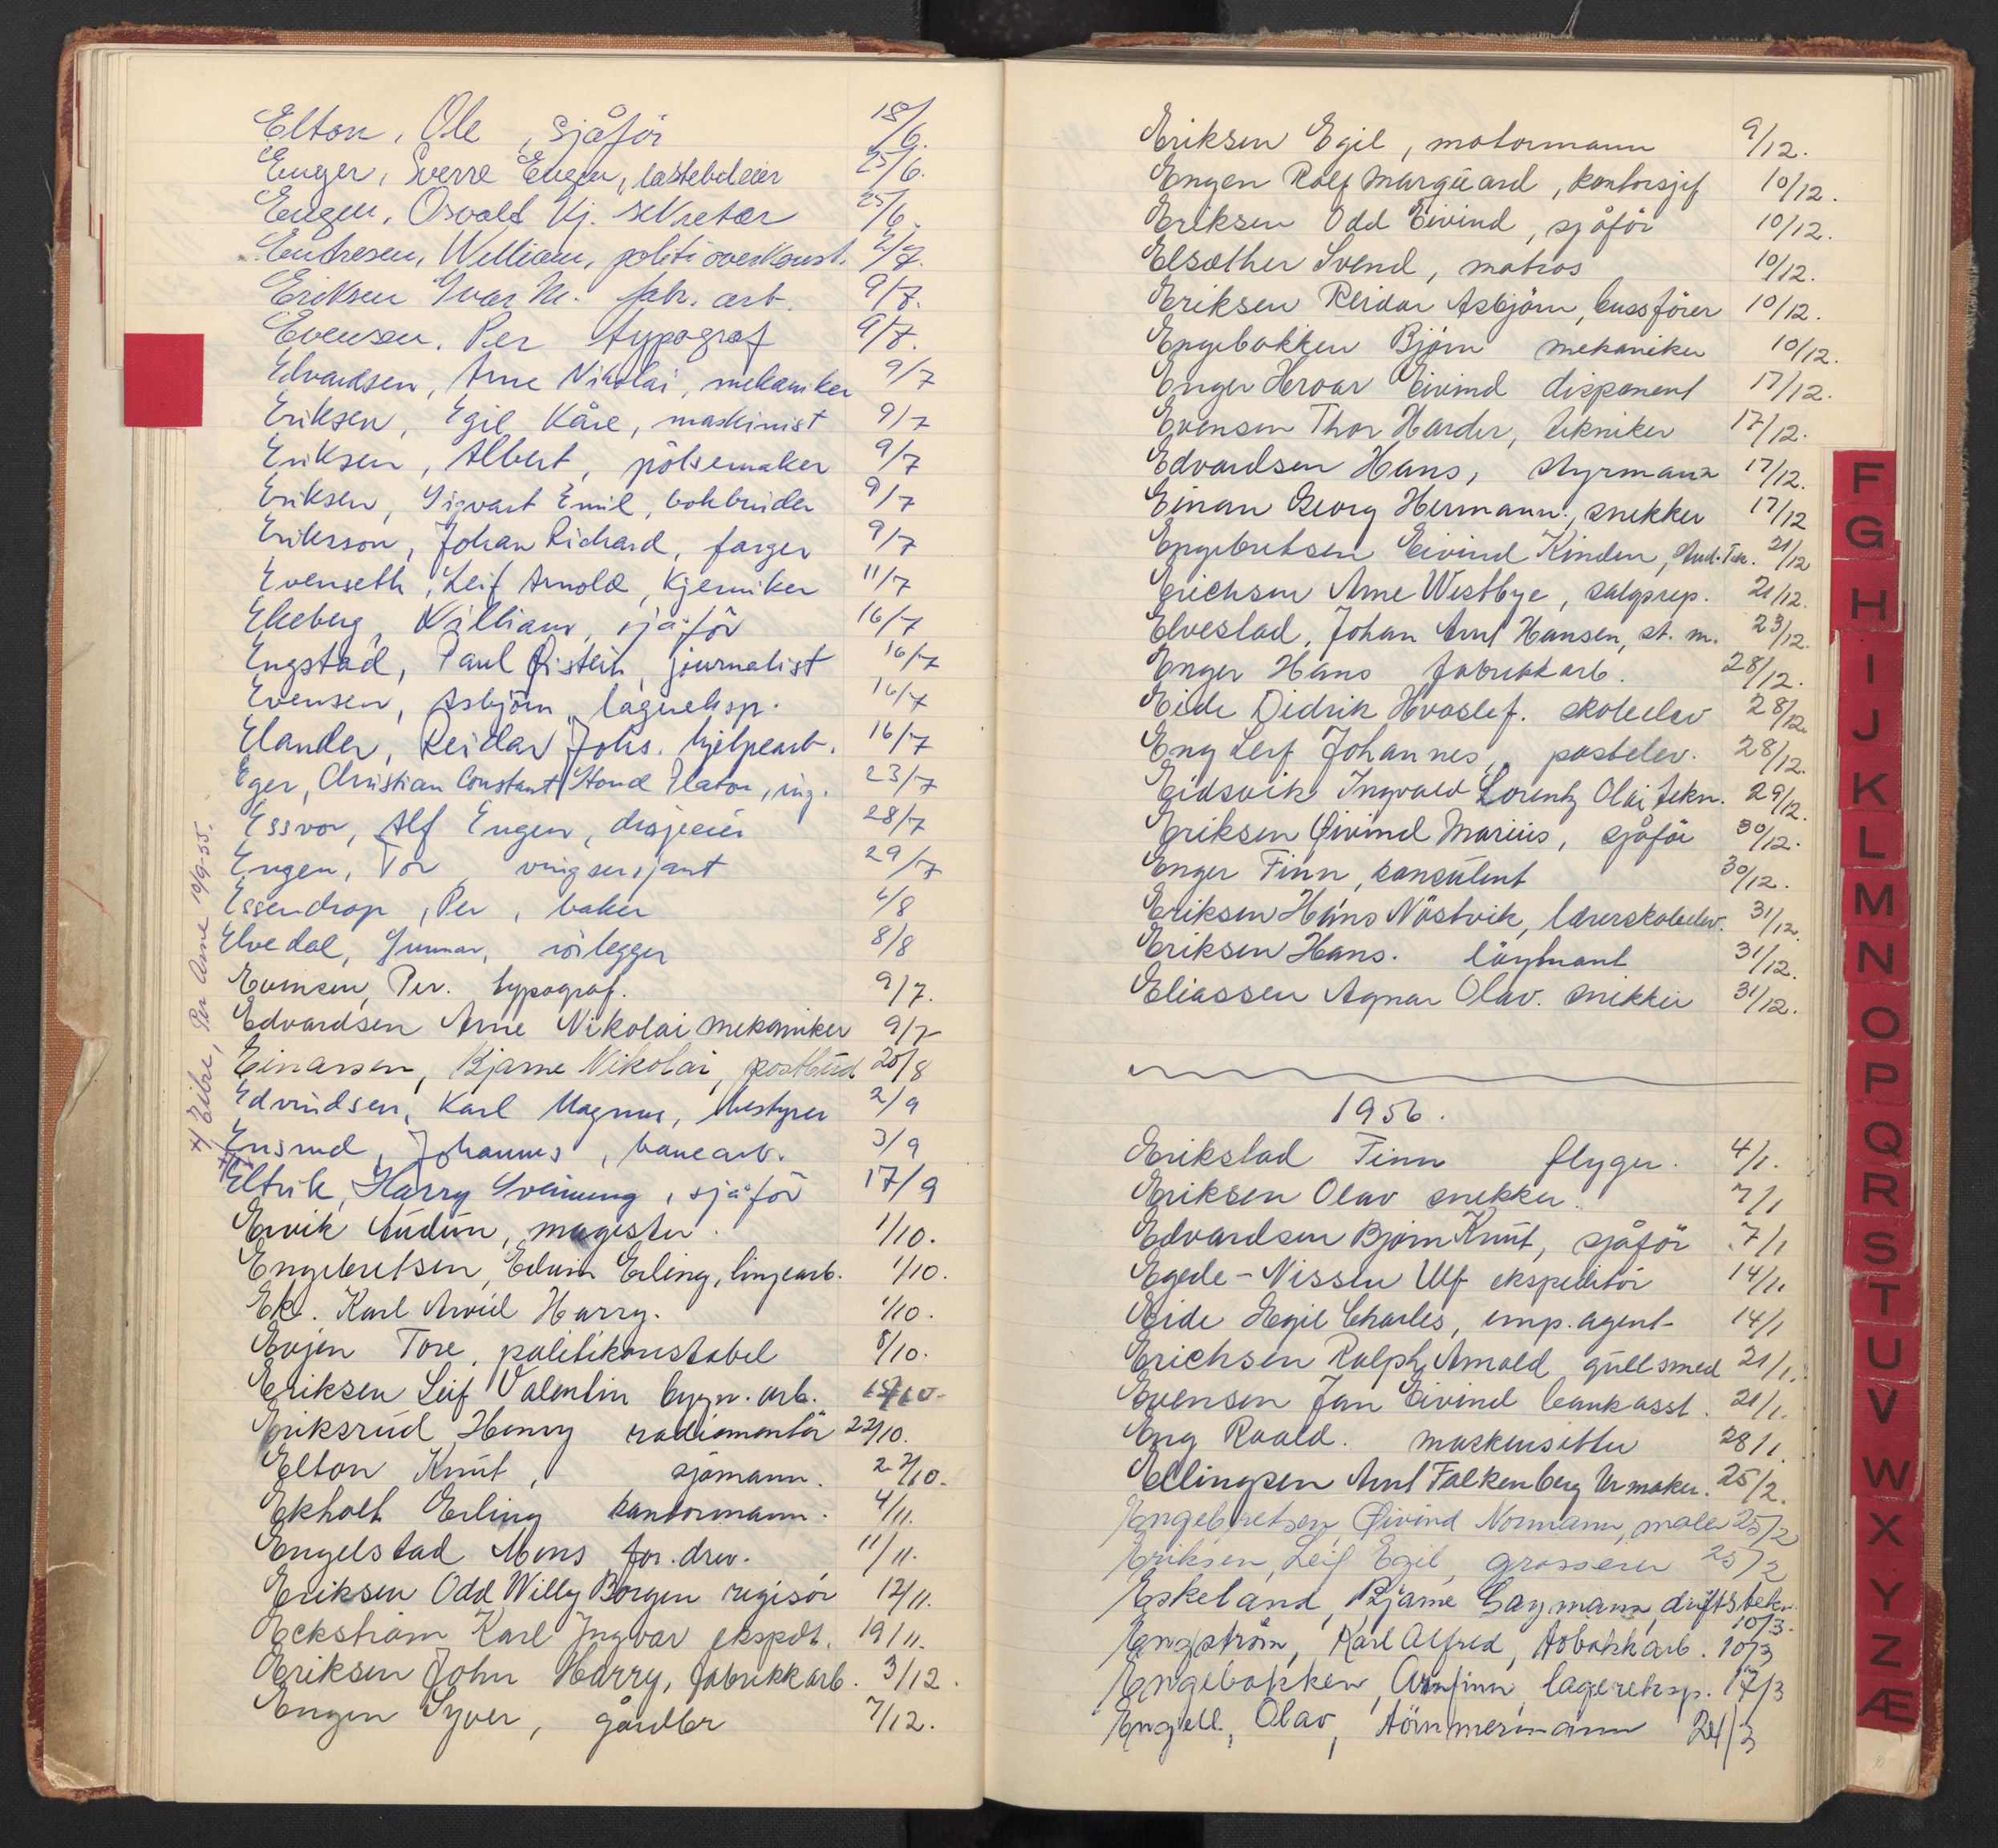 Elton, Ole, sjåför 18/6.
Enger, Sverre Eugen, lastebileier 25/6.
Engen, Osvald Kj. sekretær 25/6.
Endresen, William, politioverkonst. 2/7.
Eriksen Ivar M. fabr. arb. 9/7.
Evensen, Per typograf 9/7.
Edvardsen, Arne Nikolai, mekaniker 9/7
Eriksen, Egil Kåre, maskinist 9/7
Eriksen, Albert, pölsemaker 9/7
Eriksen, Sigvart Emil, bokbinder 9/7
Eriksson, Johan Richard, farger 9/7
Evenseth, Leif Arnold, kjemiker 11/7
Ekeberg, William, sjåför 16/7
Engstad, Paul Øistein, journalist 16/7
Evensen, Asbjörn, lagereksp. 16/7
Elander, Reidar Johs. hjelpearb. 16/7
Eger, Christian Constant Hond Platou, ing. 23/7
Essvor, Alf Eugen, drosjeeier 28/7
Engen, Tor, vingsersjant 29/7
Essendrop, Per, baker 4/8
Elvedal, Gunnar, rörlegger 8/8
Evensen, Per. typograf. 9/7.
Edvardsen Arne Nikolai mekaniker 9/7
Einarsen, Bjarne Nikolai, postbud 20/8
Edvindsen, Karl Magnus, bestyrer 2/9
Ensrud, Johannes, banearb. 3/9
+) Eibre, Per Arne 10/9-55.
Eltvik, Harry Sveinung, sjåför 17/9
Ervik Audun, magister. 1/10.
Engebretsen, Edwin Erling, linjearb. 1/10.
Ek. Karl Arvid Harry. 1/10.
Evjen Tore, politikonstabel 8/10.
Eriksen Leif Valentin bygn. arb. 15/10.
Eriksrud Henry radiomontör 22/10.
Elton Knut, sjömann. 27/10.
Ekholt Erling kontormann. 4/11.
Engelstad Mons for. drev. 11/11.
Eriksen Odd Willy Borgen regisör 12/11.
Eckström Karl Ingvar ekspdt. 19/11.
Eriksen John Harry, fabrikkarb. 3/12.
Engen Syver, gårdbr 7/12.
Eriksen Egil, motormann 9/12.
Engen Rolf Marguard, kontorsjef 10/12.
Eriksen Odd Eivind, sjåför 10/12.
Elsæther Svend, matros 10/12.
Eriksen Reidar Asbjörn, bussförer 10/12.
Engebakken Bjørn mekaniker 10/12.
Enger Hroar Eivind disponent 17/12.
Evensen Thor Harder, tekniker 17/12.
Edvardsen Hans, styrmann 17/12.
Einan Georg Hermann, snekker 17/12
Engebretsen Eivind Kinden, stud. 21/12
Erichsen Arne Westbye, salgsrep. 21/12.
Elvestad, Johan Arnt Hansen, st. m. 23/12.
Enger Hans fabrikkarb. 28/12.
Eide Didrik Hvoslef. skoleelev 28/12.
Eng Leif Johannes, postelev. 28/12.
Eidsvik Ingvald Lorentz Olai tekn. 29/12.
Eriksen Øivind Marius, sjåför 30/12.
Enger Finn, konsulent 30/12.
Eriksen Hans Nöstvik, lærerskoleelev. 31/12.
Eriksen Hans. löytnant 31/12.
Eliassen Agnar Olav. snekker 31/12.
1956.
Erikstad Finn flyger. 4/1.
Eriksen Olav snekker. 7/1
Edvardsen Bjørn Knut, sjåför 7/1
Egede-Nissen Ulf ekspeditör 14/1.
Eide Egil Charles, emp. agent 14/1
Erichsen Ralph Arnold gullsmed 21/1.
Evensen Jan Eivind bankasst. 21/1.
Eng Roald. maskinsetter 28/1.
Ellingsen Arnt Falkenberg Urmaker. 25/2.
Engebretsen, Øivind Normann, maler 25/2
Eriksen, Leif Egil, grosserer 25/2
Eskeland, Bjarne Gaymann, driftstekn. 10/3.
Engström, Karl Alfred, tobakkarb. 10/3
Engebakken, Arnfinn, lagereksp. 17/3
Engell, Olav, tömmermann 24/3
F
G
H
I
J
K
L
M
N
O
P
Q
R
S
T
U
V
W
X
Y
Z
Æ